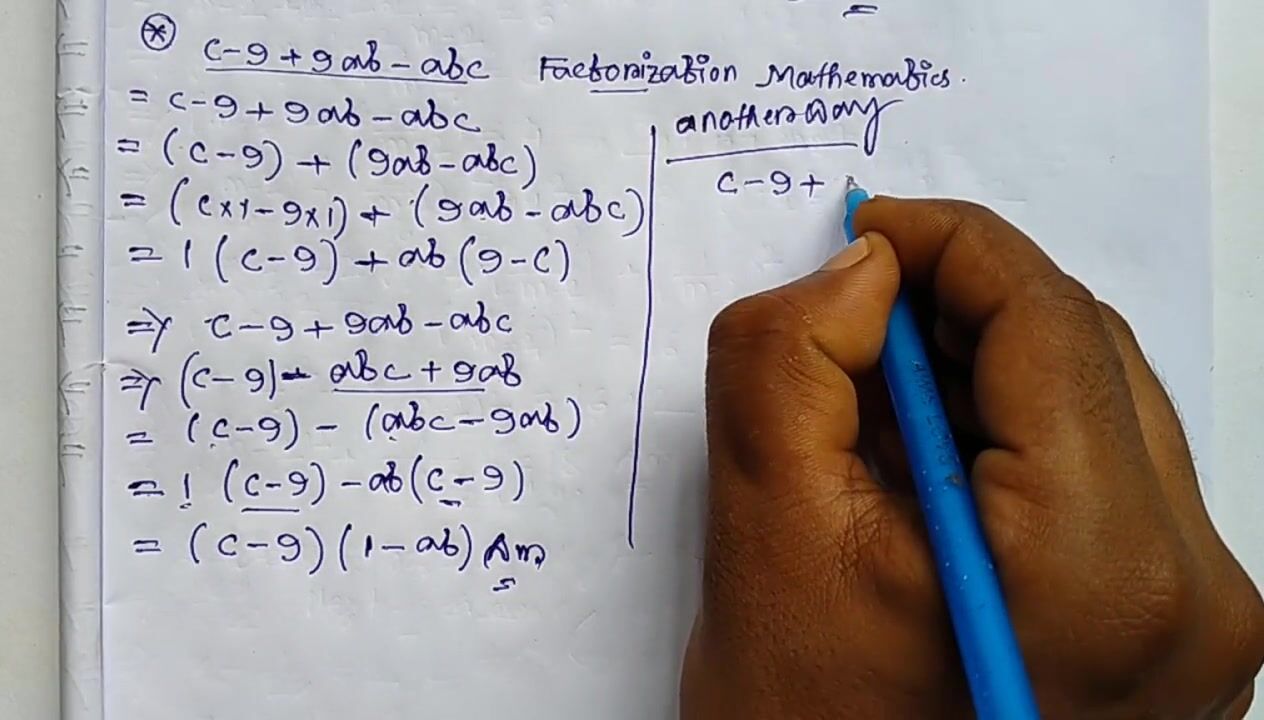 * c-9+9ab-abc Factorization Mathematics.
= c-9+9ab-abc
= (c-9) + (9ab-abc)
= (c×1-9×1) + (9ab-abc)
= 1(c-9)+ab(9-c)
⇒ c-9+9ab-abc
⇒ (c-9)-abc+9ab
= (c-9) - (abc-9ab)
= 1(c-9)-ab(c-9)
= (c-9)(1-ab) Ans
another way
c-9+